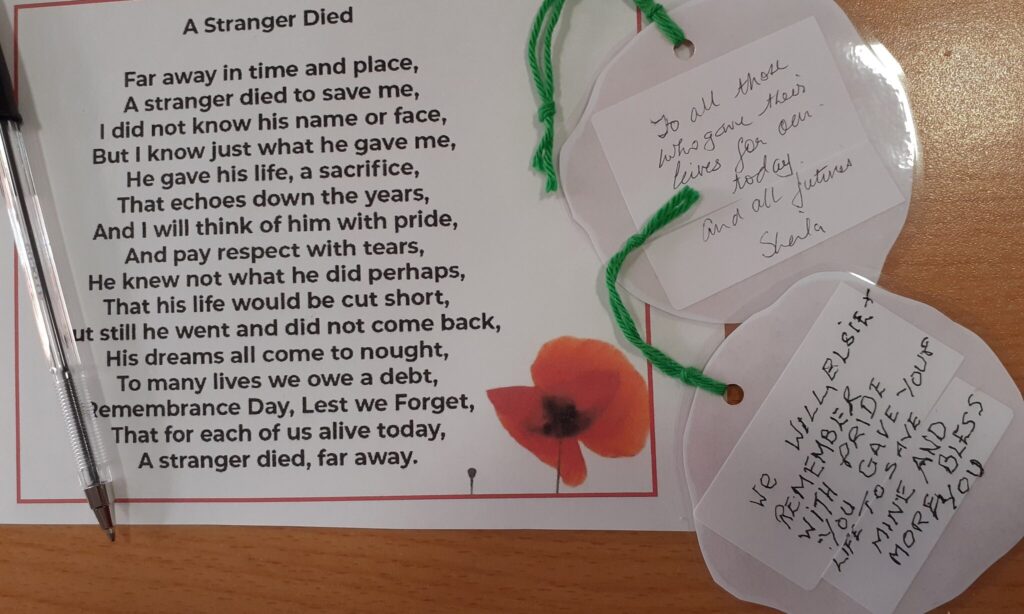 A Stranger Died
Far away in time and place,
A stranger died to save me,
I did not know his name or face,
But I know just what he gave me,
He gave his life, a sacrifice,
That echoes down the years,
And I will think of him with pride,
And pay respect with tears,
He knew not what he did perhaps,
That his life would be cut short,
ut still he went and did not come back,
His dreams all come to nought,
To many lives we owe a debt,
Remembrance Day, Lest we Forget,
That for each of us alive today,
A stranger died, far away.
To all those
who gave their
lives for our
today.
and all futures
Sheila
WE WILL
REMEMBER
WITH PRIDE
YOU GAVE YOUR
LIFE TO SAVE
MINE AND
MORE BLESS
YOU
ELSIE +